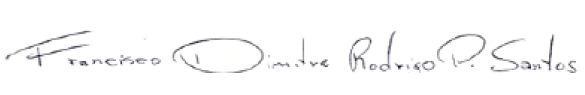 Francisco Dimitre Rodrigo P. Santos